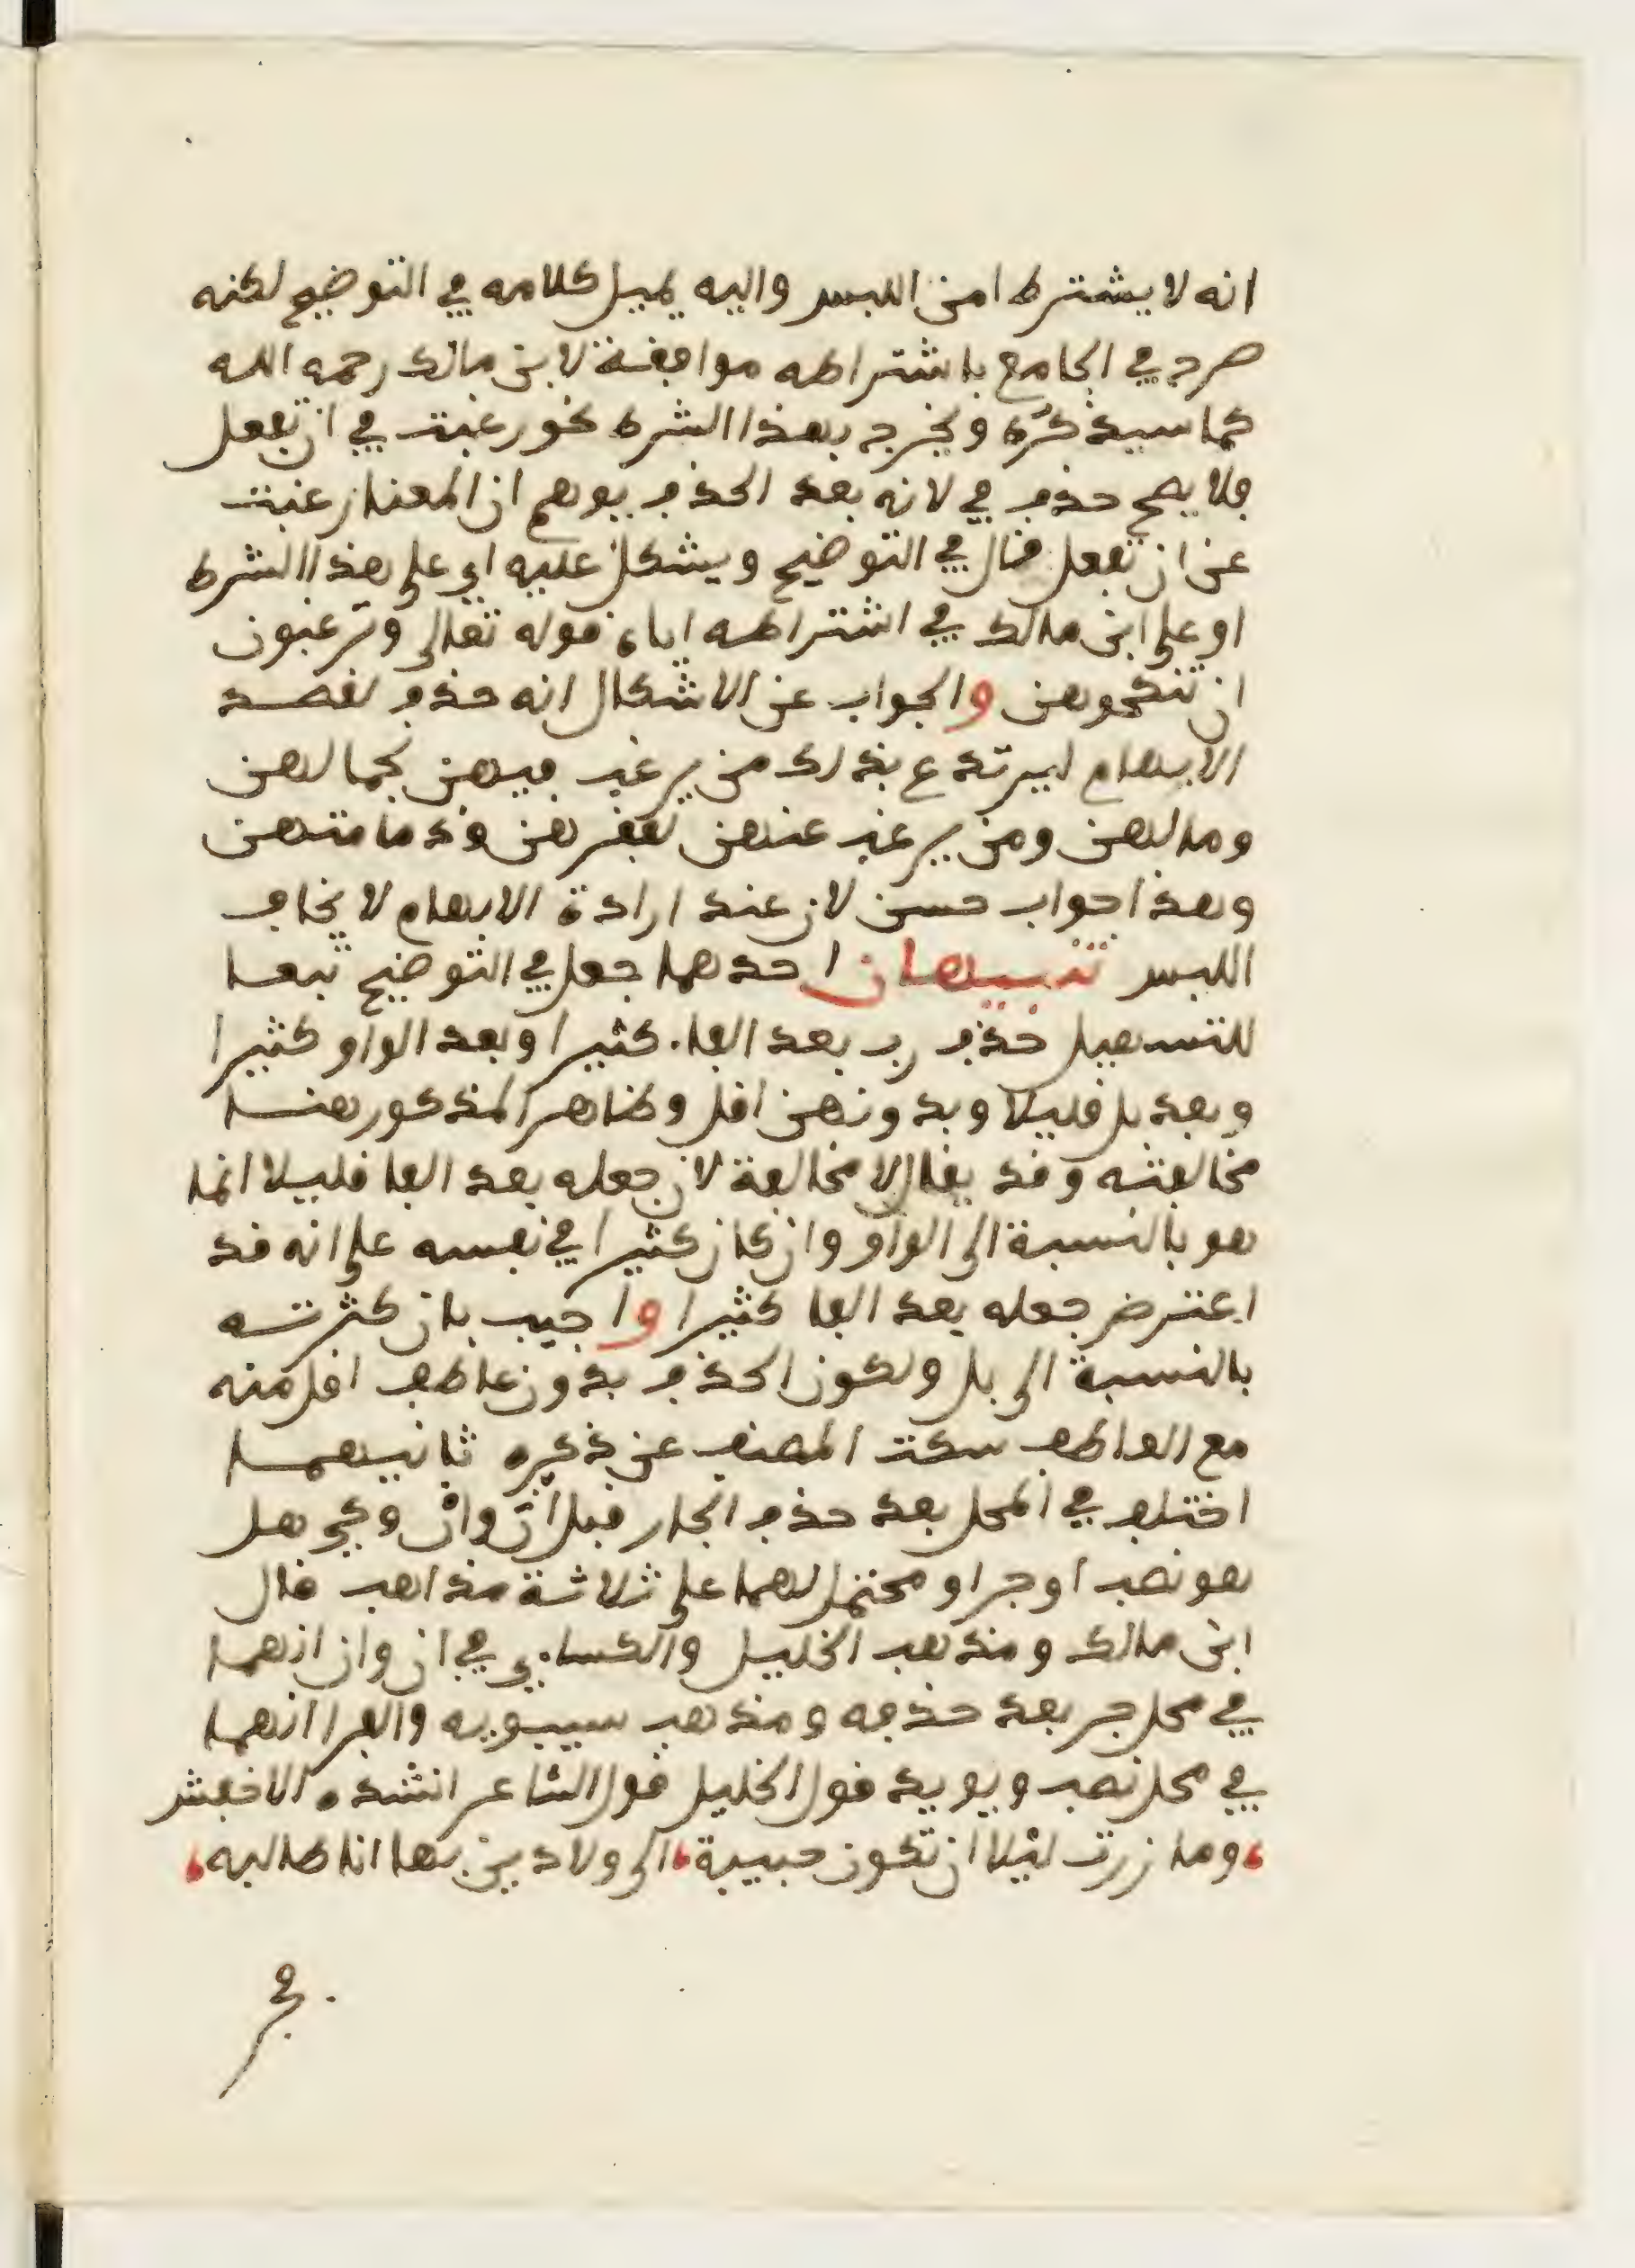 انه لا يشترط امن اللبس واليه يميل كلامه في التوضيح لكنه
صرح في الجامع باشتراطه موافقة لابن مالك رحمه الله
كما سيذكره ويخرج بهذا الشرط نحو رغبت في ان تفعل
فلا يصح حذف في لانه بعد الحذف يوهم ان المعنا رغبت
عن ان تفعل قال في التوضيح ويشكل عليه اي على هذا الشرط
او على ابن مالك في اشتراطه اياه قوله تعالى وترغبون
ان تنكحوهن والجواب عن الاشكال انه حذف لقصد
الابهام ليرتدع بذلك من يرغب فيهن لجمالهن
ومالهن ومن يرغب عنهن لفقرهن ودمامتهن
وهذا جواب حسن لان عند ارادة الابهام لا يخاف
اللبس تنبيهان احدهما جعل في التوضيح تبعا
للتسهيل حذف رب بعد الفاء كثيرا وبعد الواو كثيرا
وبعد بل قليلا وبدونهن اقل وظاهر المذكور هنا
مخالفته وقد يقال لا مخالفة لان جعله بعد الفا قليلا انما
هو بالنسبة الى الواو وان كان كثيرا في نفسه على انه قد
اعترض جعله بعد الفا كثيرا واجيب بان كثرته
بالنسبة الى بل ولكون الحذف بدون عاطف اقل منه
مع العاطف سكت المصنف عن ذكره ثانيهما
اختلف في المحل بعد حذف الجار قبل أنّ وأنْ وكي هل
هو نصب او جر او محتمل لهما على ثلاثة مذاهب قال
ابن مالك ومذهب الخليل والكسايي في ان وان انهما
في محل جر بعد حذفه ومذهب سيبويه والفرا انهما
في محل نصب ويويد قول الخليل قول الشاعر انشده الاخفش
، وما زرت ليلا ان تكون حبيبة ، الى ولا دين بها انا طالبه ،